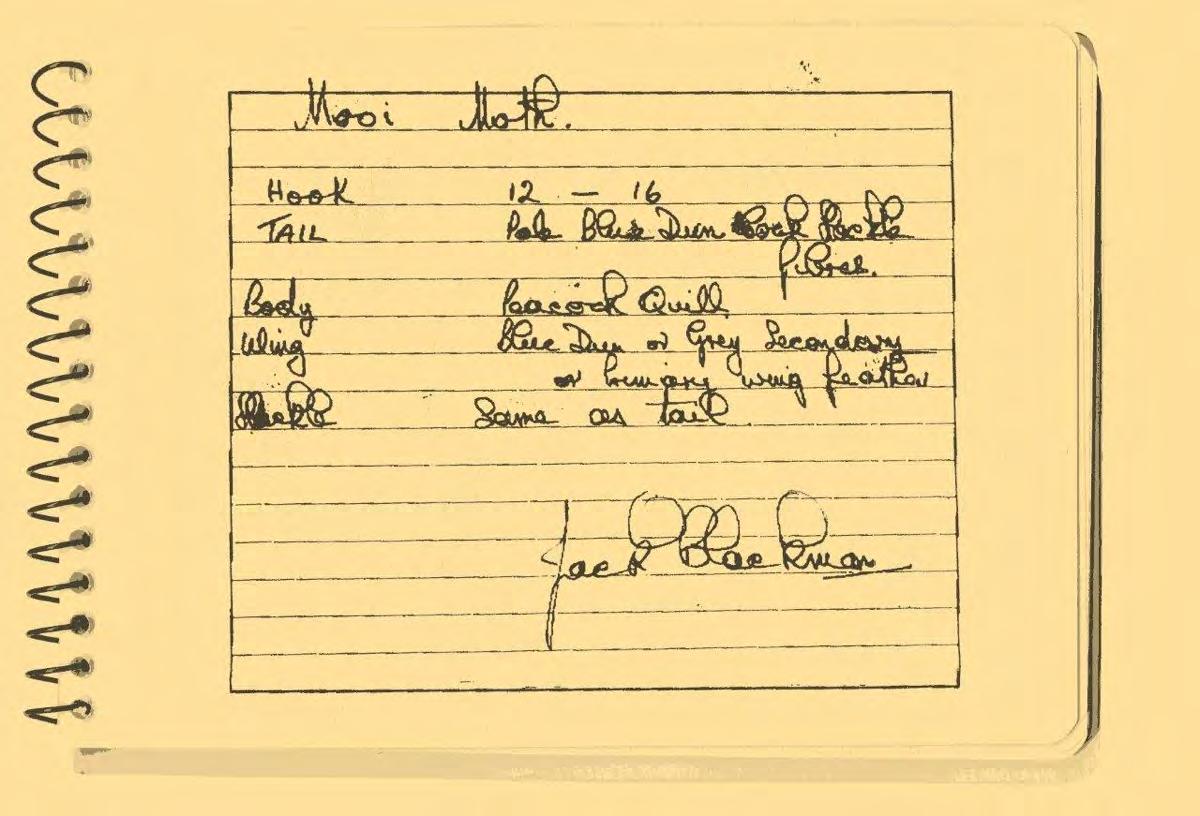 Mooi Moth.
Hook 12 — 16
TAIL Pale Blue Dun Cock Hackle
fibres.
Body Peacock Quill
Wing Blue Dun or Grey Secondary
or primary wing feather
Hackle Same as tail
Jack Blackman